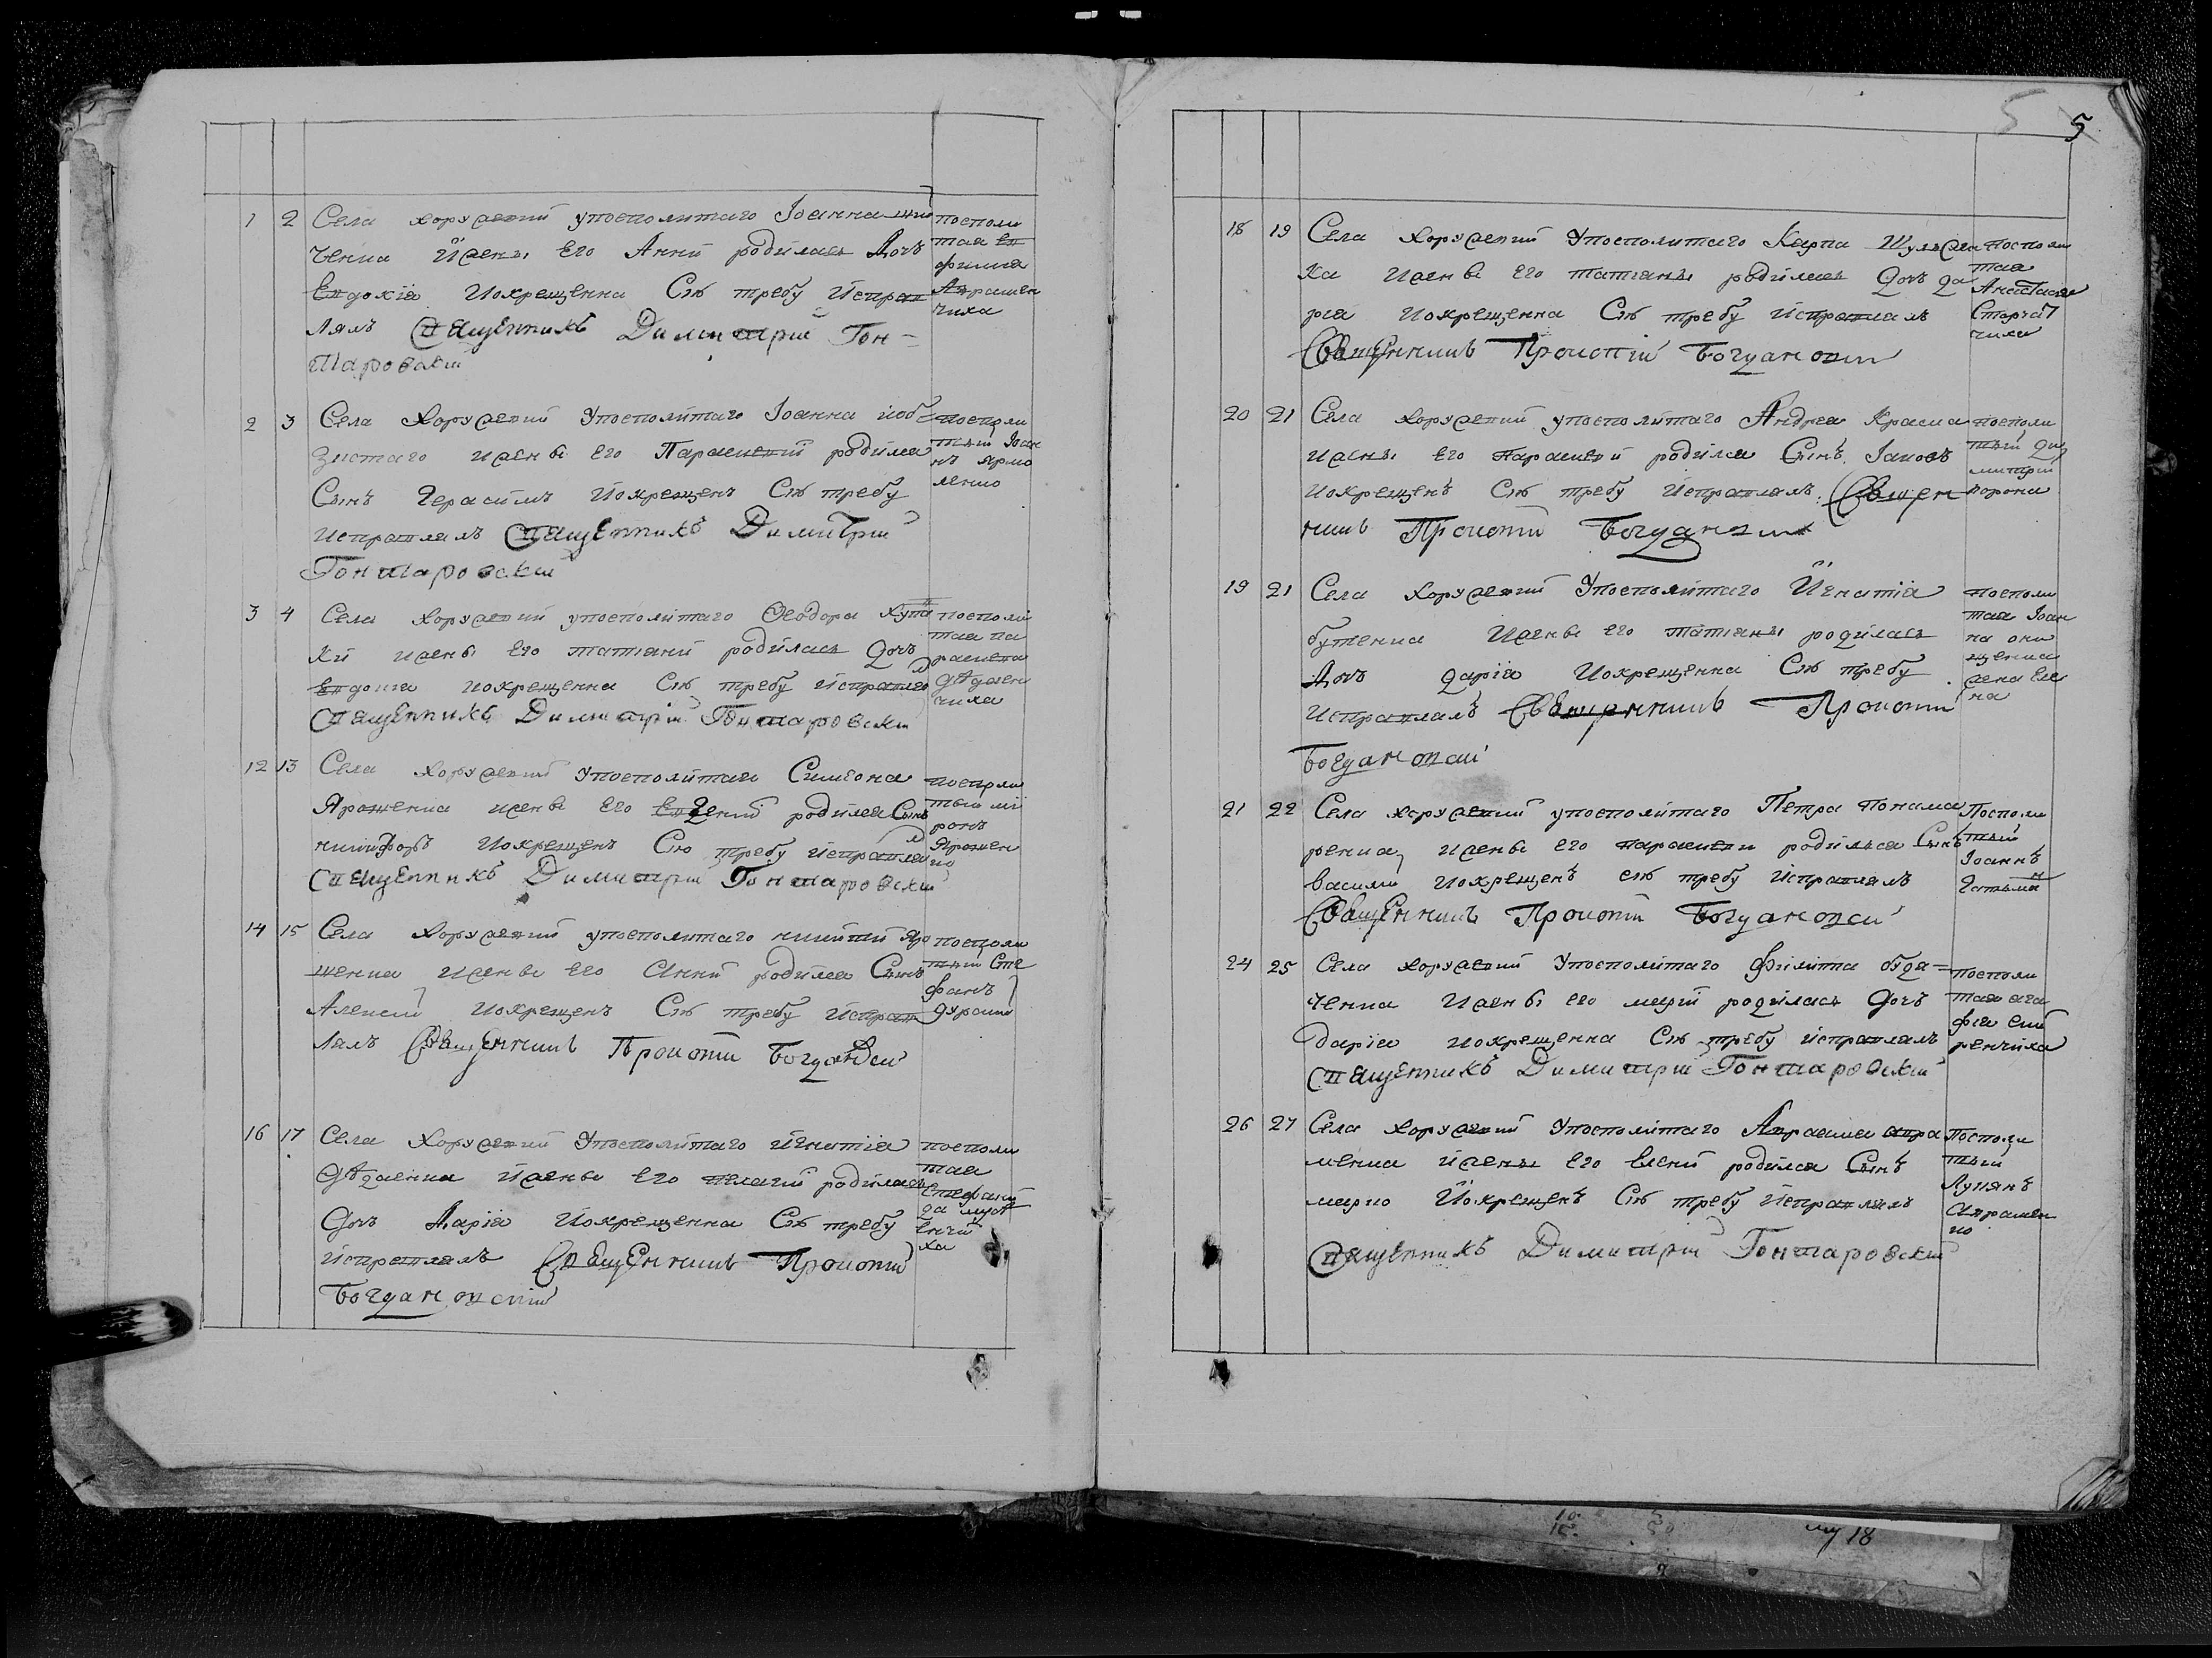 5
1 2 Села хоружевки упосполитаго Іоанна
ченка Ижены Его Анни родилась Дочь
Евдокіа Иокрещенна Сію требу исправ
лялъ Священникъ Димитрій Гон=
таровскій
посполи
тая Ев
фимиа
Авраμен
чиха
2 3 Села Хоружевки Упосполитаго Іоанна
зистаго ижены Его Параскевии родилса
Сынъ Герасимъ Иокрещенъ Сію требу
исправлялъ Священникъ Димитрій
Гонтаровскій
посполи
тый Іоан
нъ Ярмо
ленко
3 4 Села Хоружевки упосполитаго Ѳеодора
ки ижены Его татияни родилась Дочь
Евдокиа иокрещенна Сію требу исправлял
Священникъ Димитрій Гонтаровскій
посполи
тая па
раскева
дѣдчен
чиха
12 13 Села хоружевки упосполитаго Симеона
Ярошенка ижены Его Евгении родилса Сынъ
никифоръ Иокрещенъ Сію требу исправлял
Священникъ Димитрій Гонтаровскій
посполи
тый ми
ронъ
Ярошен
ко
14 15 Села Хоружевки упосполитаго никити Яро
шенка ижены Его Анни родилса Сынъ
Алексий Иокрещенъ Сію требу исправ
лялъ Священникъ Прокопій Богдановскій
посполи
тый Сте
фанъ
16 17 Села Хоружевки Упосполитаго игнатіа
ижены Его пелагии родилась
Дочь Даріа Иокрещенна Сію требу
исправлялъ Священникъ Прокопій
Богдановскій
посполи
тая
18 19 Села Хоружевки Упосполитаго Карпа Шулжен
ка ижены Его татианы родилась Дочь да
риа Иокрещенна Сію требу исправлялъ
Священникъ Прокопій Богдановскій
посполи
тая
Анастасия
20 21 Села Хоружевки упосполитаго Андреа Красна
ижены Его Параскевии родилса Сынъ Іаковъ
Иокрещенъ Сію требу исправлялъ Священ
никъ Прокопій Богдановскій
посполи
тый ди
митрий
ворона
19 21 Села Хоружевки Упосполитаго Игнатіа
бутенка Ижены Его татианы родилась
Дочь даріа Иокрещенна Сію требу
исправлялъ Священникъ Прокопій
Богдановскій
посполи
тая Іоан
на они
щенка
жена Еле
на
21 22 Села хоружевки упосполитаго Петра Понама
ренка ижены Его параскеви родилъса Сынъ
василій Иокрещенъ сію требу исправлялъ
Священникъ Прокопій Богдановскій
Посполи
тый
Іоаннъ
Гатьман
24 25 Села хоружевки Упосполитаго Филиппа
ченка Ижены его марии родилась Дочь
Даріа иокрещенна Сію требу исправлялъ
Священникъ Димитрій Гонтаровскій
посполи
тая ага
фиа
26 27 Села хоружевки Упосполитаго Авраама авра
менка ижены Его Елени родилса Сынъ
марко Иокрещенъ Сію требу исправлялъ
Священникъ Димитрій Гонтаровскій
Посполи
тый
Лукянъ
Авраμен
ко
18